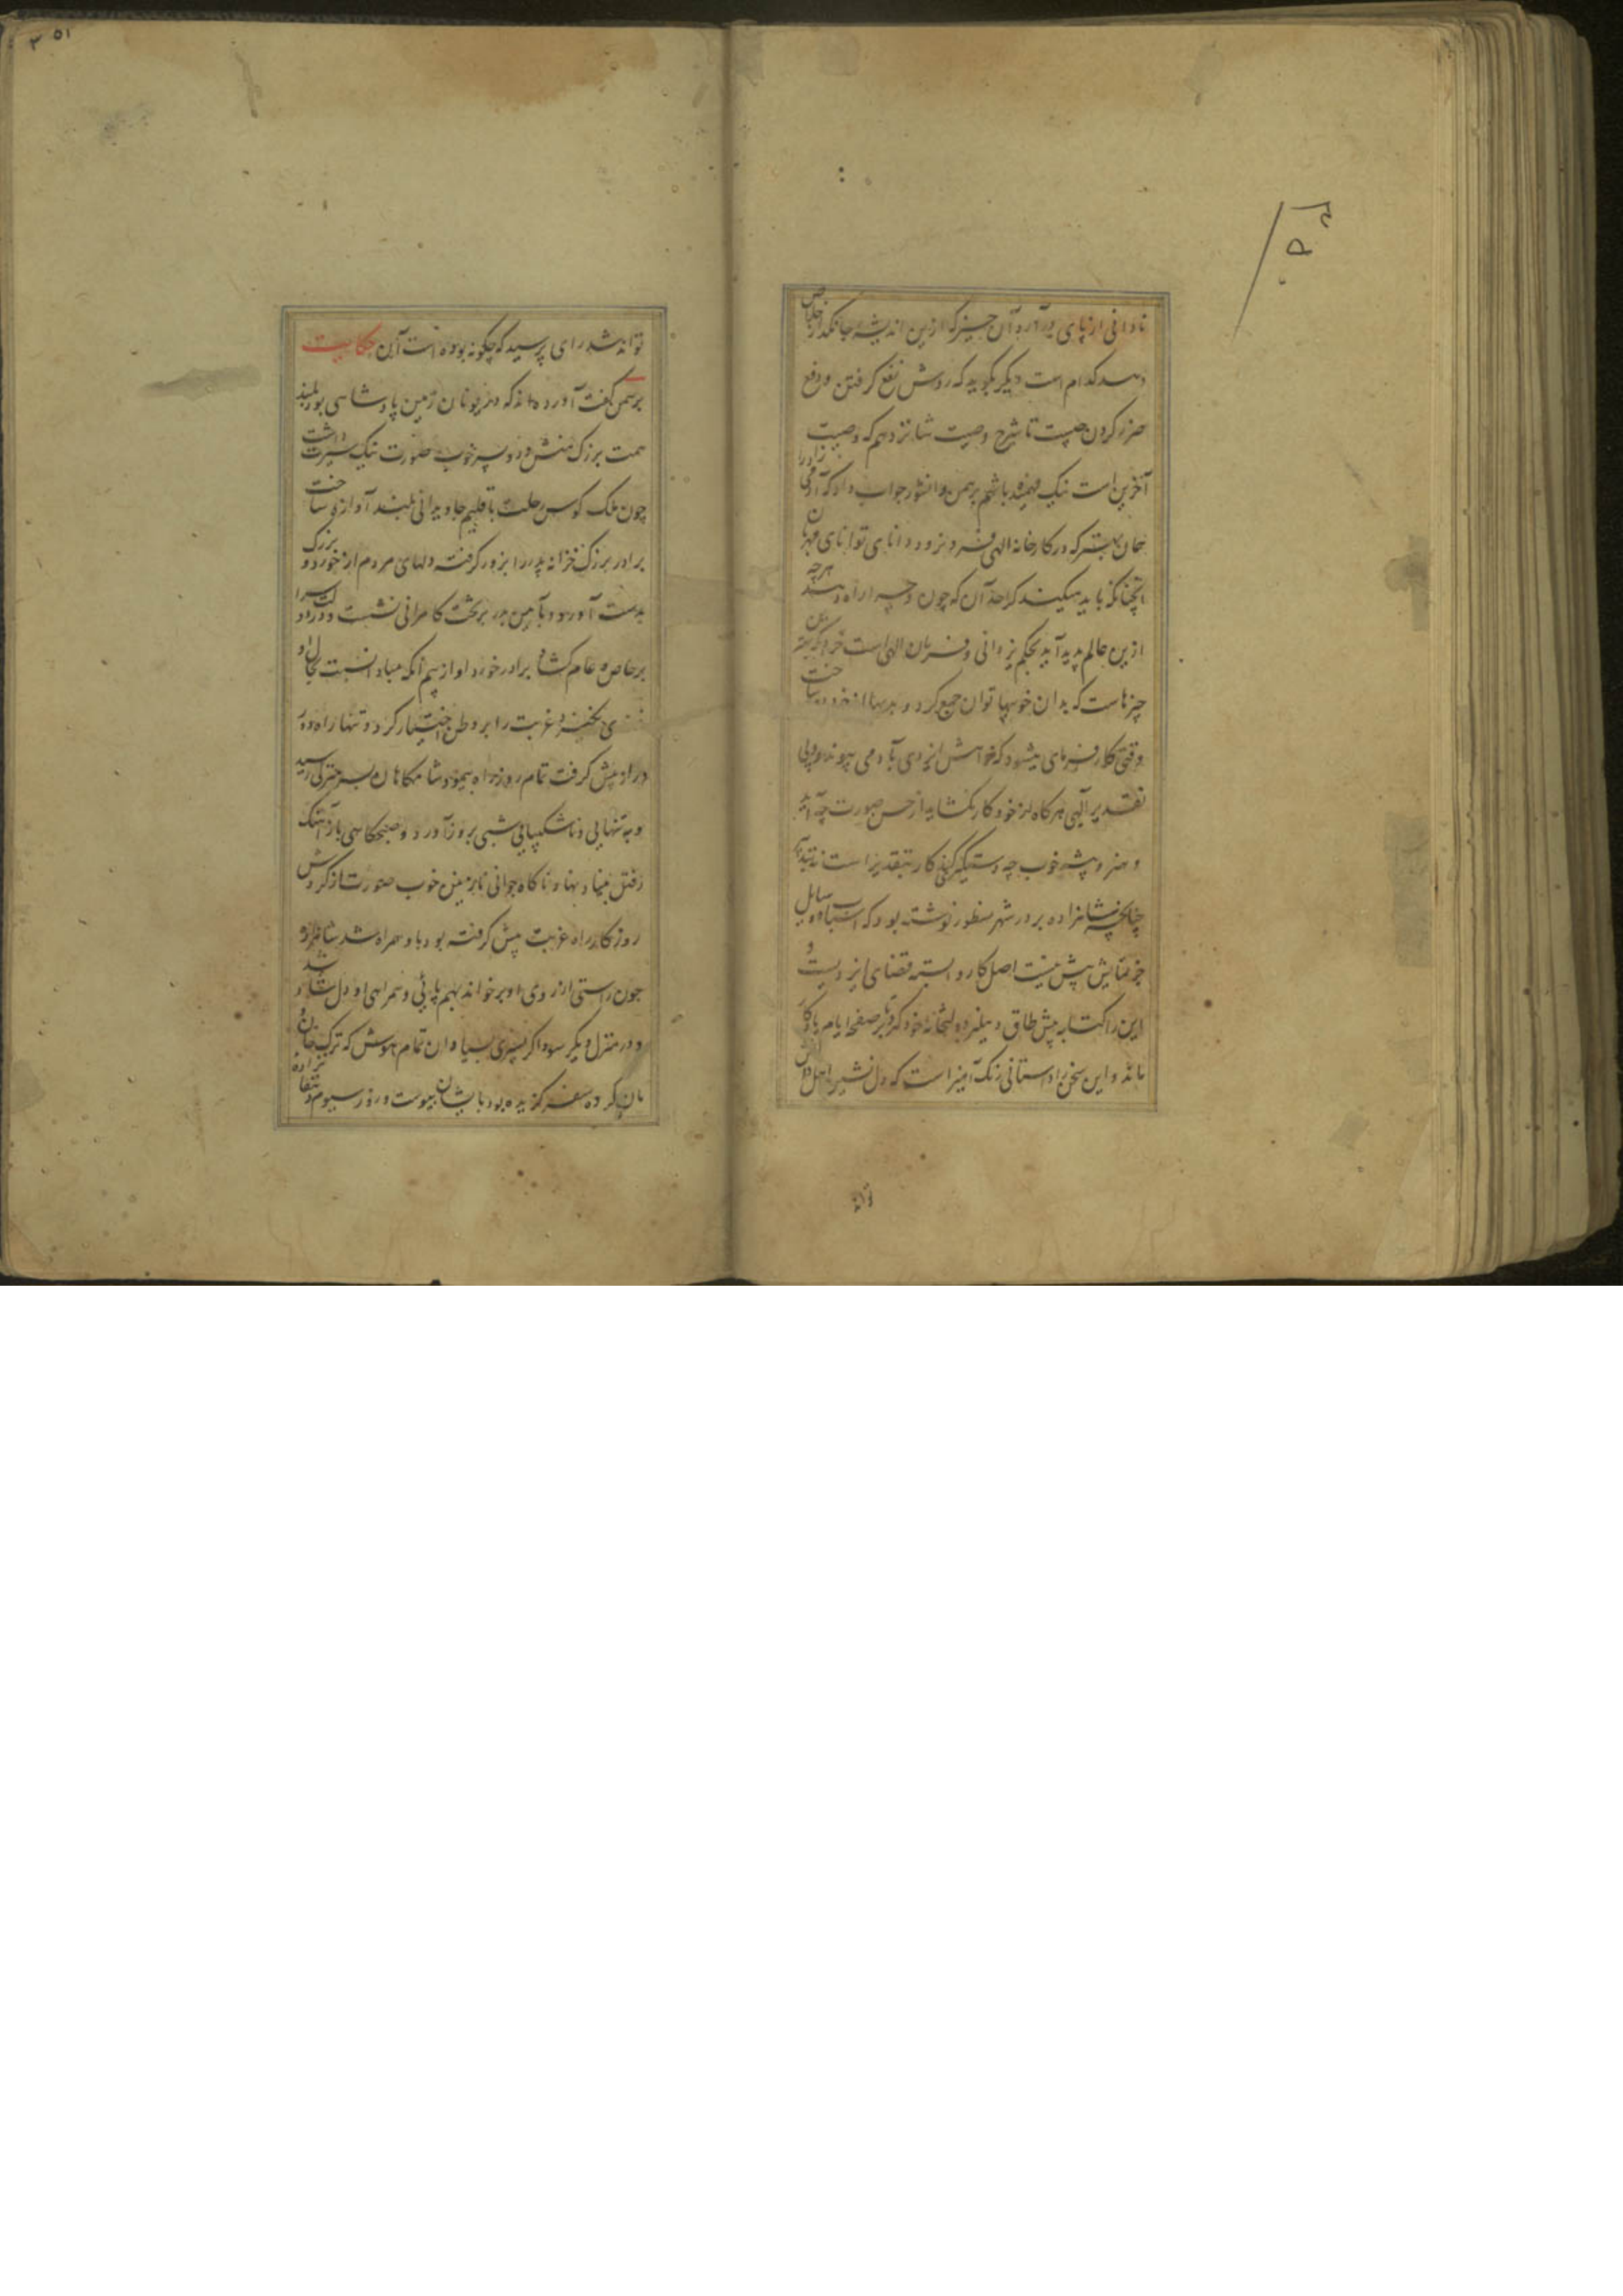 نادانی از پای در آرد آن چیز که ازین اندیشه جانگداز خلاص
دهد کدام است دیگر بگوید که روش نفع گرفتن و دفع
ضرر کردن چیست تا شرح وصیت شانزدهم که وصیت
آخرین است نیک فهمیده باشم برهمن دانشور جواب داد که آدمی زاد را
همان بهتر که در کارخانه الهی فرو نرود دانای توانای مهربان
آنچنانکه باید میکند کرا حد آن که چون و چرا راه دهد هرچه
ازین عالم پدید آید بحکم یزدانی و فرمان الهی است خرد گزین
چیزهاست که بدان خوبیها توان جمع کرد و بدیها از خود دور ساخت
وقتی کارفرمای میشود که خواهش ایزدی با آدمی پیوندد ولی
تقدیر الهی هرگاه از خود کار نگشاید از حسن صورت چه آید
و هنر و پیشه خوب چه دستگیری کند کار بتقدیر است نه تدبیر
چنانچه شاهزاده بر در شهر منطور نوشته بود که اسباب و وسایل
جز نمایش پیش نیست اصل کار وابسته قضای ایزدیست و
این را کتابه پیش طاق دهلیز دولتخانه خود کرد تا بر صفحه ایام یادگار
ماند و این سخن را داستانی رنگ آمیز است که دل نشین اهل دانش
تواند
تواند شد رای پرسید که چگونه بوده است آن حکایت
برهمن گفت آورده اند که در یونان زمین پادشاهی بود بلند
همت بزرگ منش دو پسر خوب صورت نیک سیرت داشت
چون ملک کوس رحلت باقلیم جاودانی بلند آوازه ساخت
برادر بزرگ خزانه پدر را بزور گرفته دلهای مردم از خورد و بزرگ
بدست آورد و بآیین پدر بر تخت کامرانی نشست و در دولت سرا
بر خاص و عام گشاد برادر خورد او از بیم آنکه مبادا نسبت بحال او
بدی بخیزد غربت را بر وطن اختیار کرد و تنها راه دور
دراز پیش گرفت تمام روز راه پیمود شامگاهان بسر منزلی رسید
و به تنهایی و ناشکیبایی شبی بروز آورد و صبحگاهی باز آهنگ
رفتن بنیاد نهاد ناگاه جوانی نازنین خوب صورت از گردش
روزگار راه غربت پیش گرفته بود با او همراه شد شاهزاده
چون راستی از روی او بر خواند بهم پائی و همراهی او دل شاد شد
و در منزل دیگر سوداگر پسری سیاه دان تمام هوش که ترک خان و
مان کرده سفر گزیده بود با ایشان پیوست و روز سیوم دهقان زاده
۳۵۱
۳۵۰